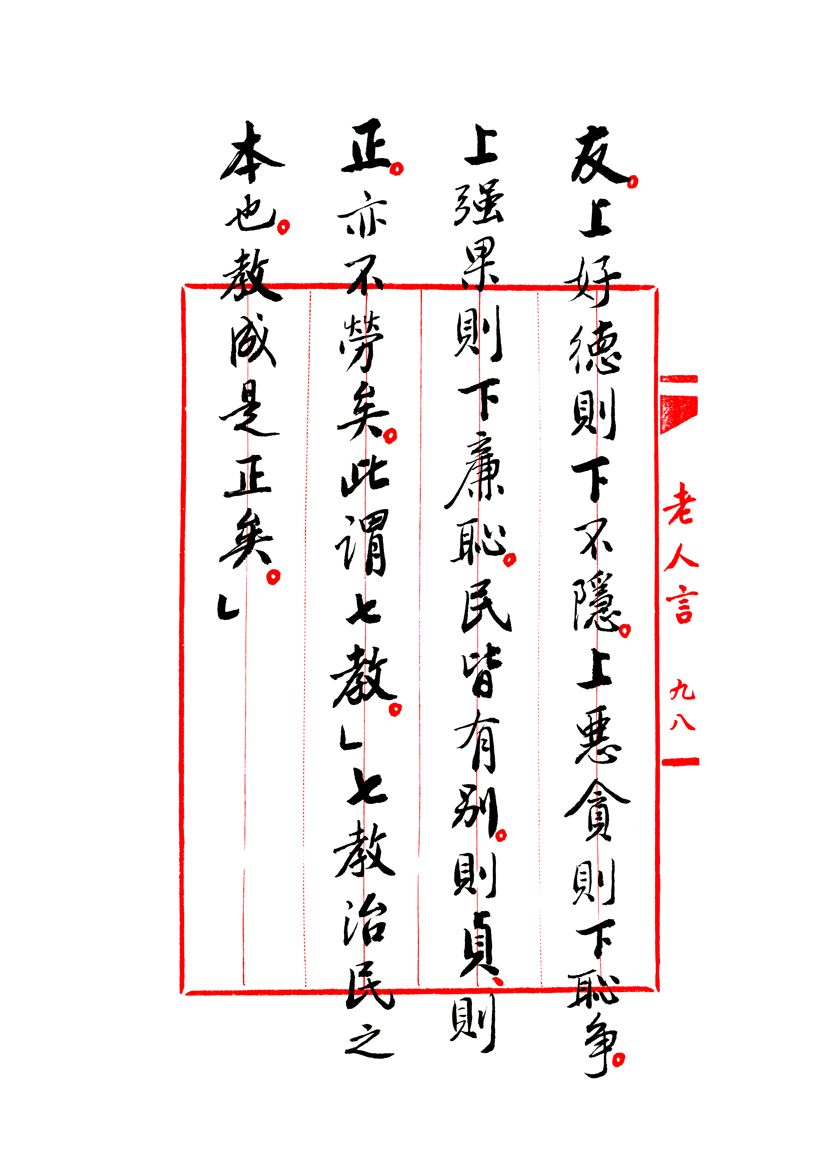 友。上好德則下不隱。上惡貪則下恥争。
上强果則下廉恥。民皆有别。則貞、則
正。亦不勞矣。此謂七教。」七教治民之
本也。教成是正矣。」
老人言 九八